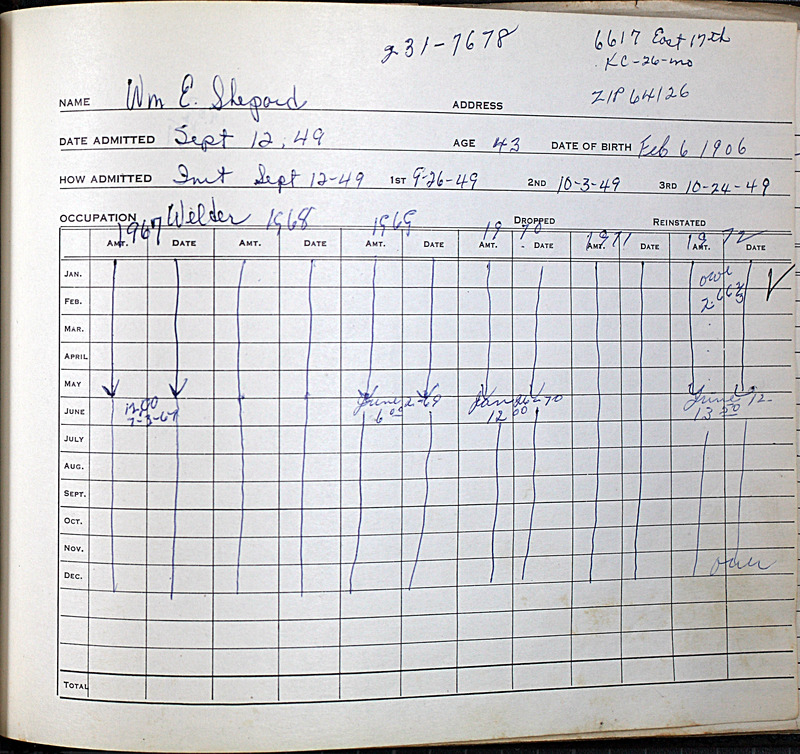 231-7678
6617 East 17th
KC-26-mo
ZIP 64126
NAME Wm E. Shepard ADDRESS
DATE ADMITTED Sept 12, 49 AGE 43 DATE OF BIRTH Feb 6 1906
HOW ADMITTED Init Sept 12-49 1ST 9-26-49 2ND 10-3-49 3RD 10-24-49
OCCUPATION Welder DROPPED REINSTATED
1967 1968 1969 1970 1971 1972
AMT. DATE AMT. DATE AMT. DATE AMT. DATE AMT. DATE AMT. DATE
JAN. owe
FEB.
MAR.
APRIL
MAY
JUNE 12.00 June 2-69 Jan 26-70 June 12-
7-3-67 6 00 12 00 13 50
JULY
AUG.
SEPT.
OCT.
NOV.
DEC. over
TOTAL